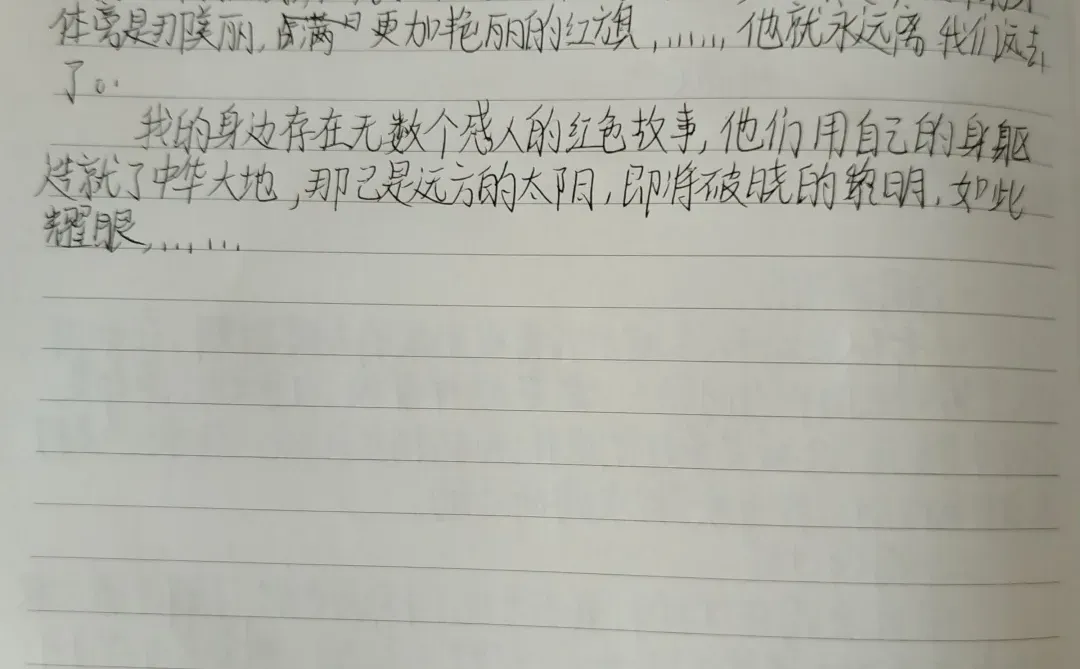 体離是那美丽,满更加艳丽的红旗,……他就永远离我们远去
了。
我的身边存在无数个感人的红色故事,他们用自己的身躯
造就了中华大地,那已是远方的太阳,即将破晓的黎明,如此
耀眼,……